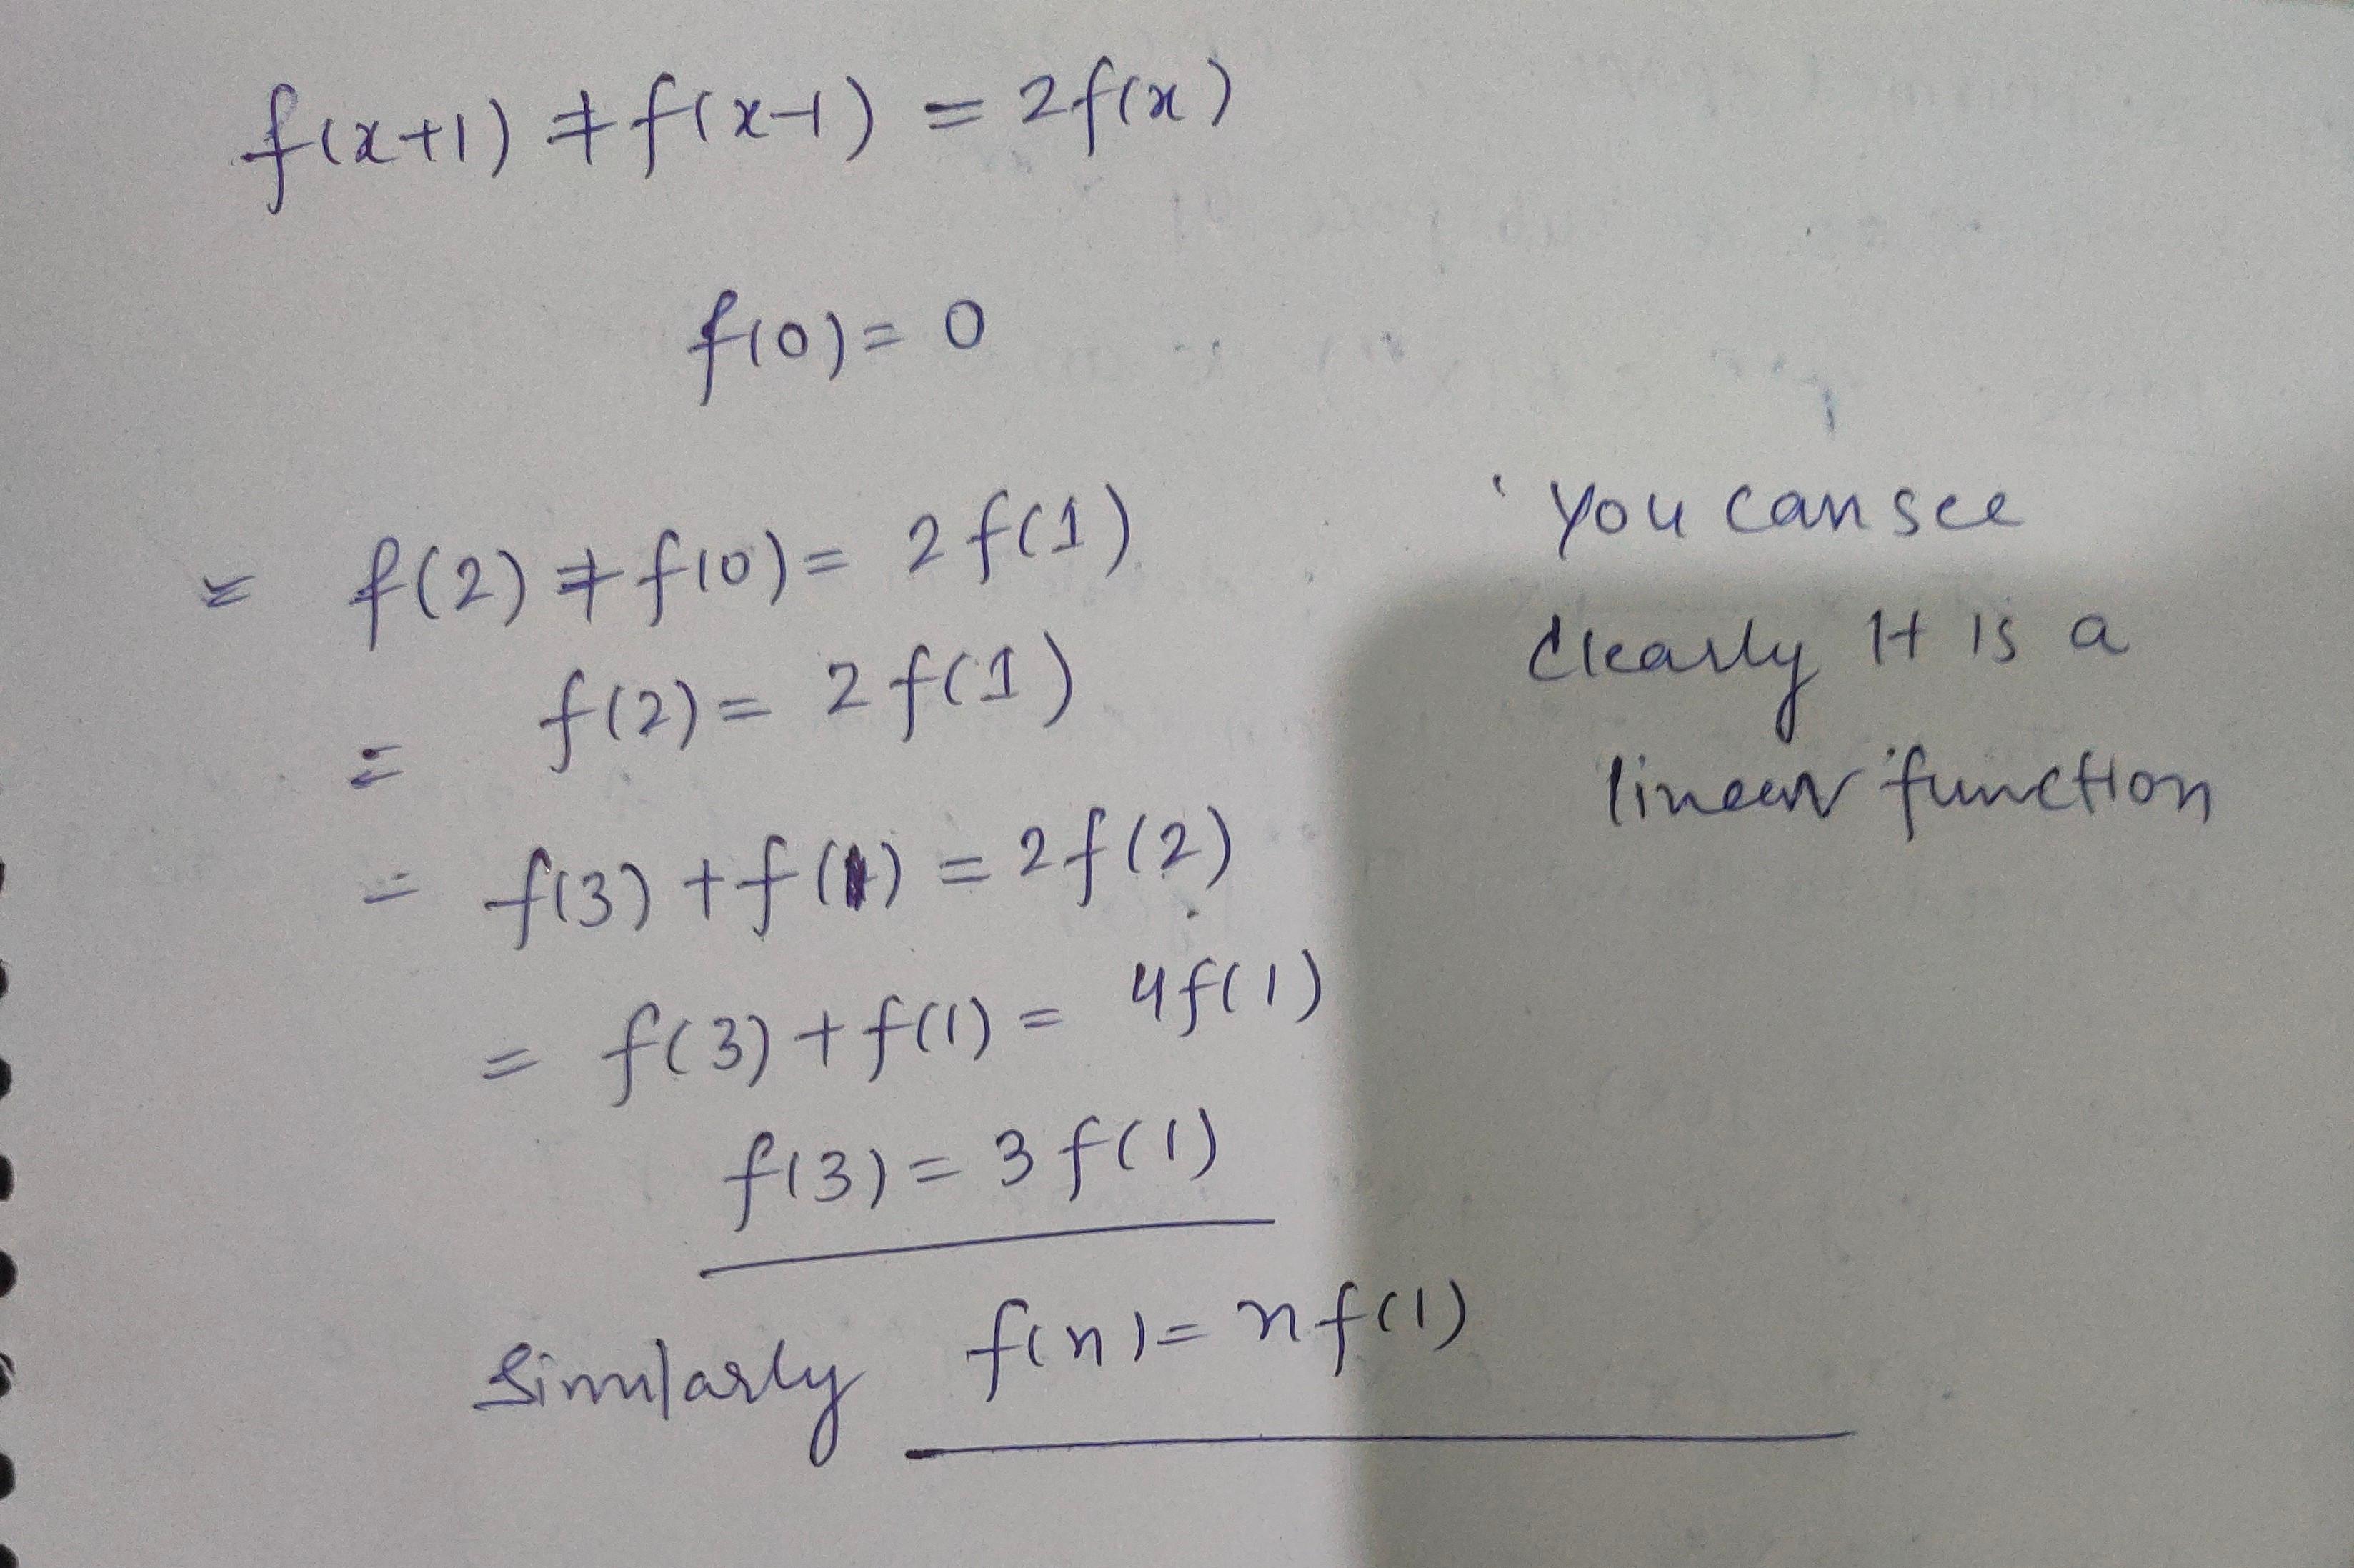 f(x+1) + f(x-1) = 2f(x)
f(0) = 0
= f(2) + f(0) = 2f(1)
= f(2) = 2f(1)
= f(3) + f(1) = 2f(2)
= f(3) + f(1) = 4f(1)
f(3) = 3f(1)
Similarly f(n) = nf(1)
You can see
clearly It is a
linear function